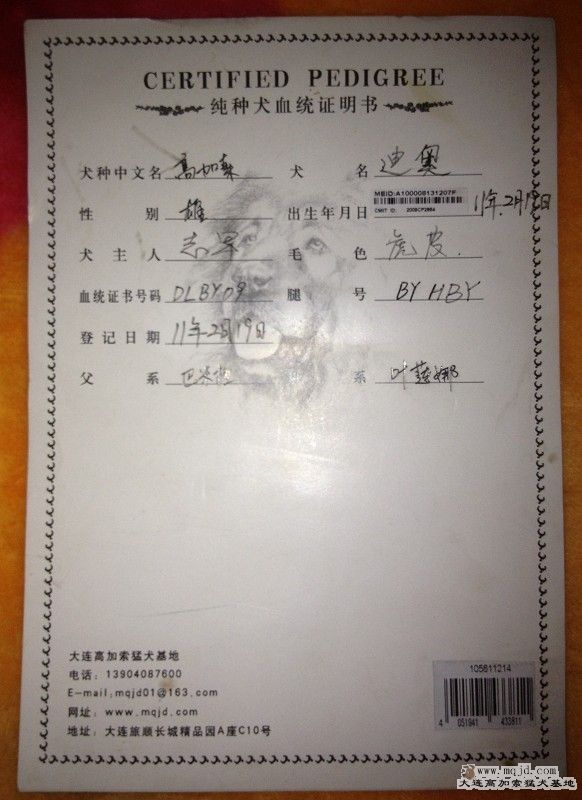 CERTIFIED PEDIGREE
纯种犬血统证明书
犬种中文名 高加索 犬名 迪奥
MEID:A100008131207F
CMIIT ID: 2009CP2864
性别 雄 出生年月日 11年.2月19日
犬主人 毛色 虎皮.
血统证书号码 DLBY09 腿号 BY HBY
登记日期 11年2月19日
父系 系 叶莲娜
大连高加索猛犬基地
电话: 13904087600
E-mail:mqjd01@163.com
网址: www.mqjd.com
地址: 大连旅顺长城精品园A座C10号
105611214
4 051941 433811
www.mqjd.com
大连高加索猛犬基地